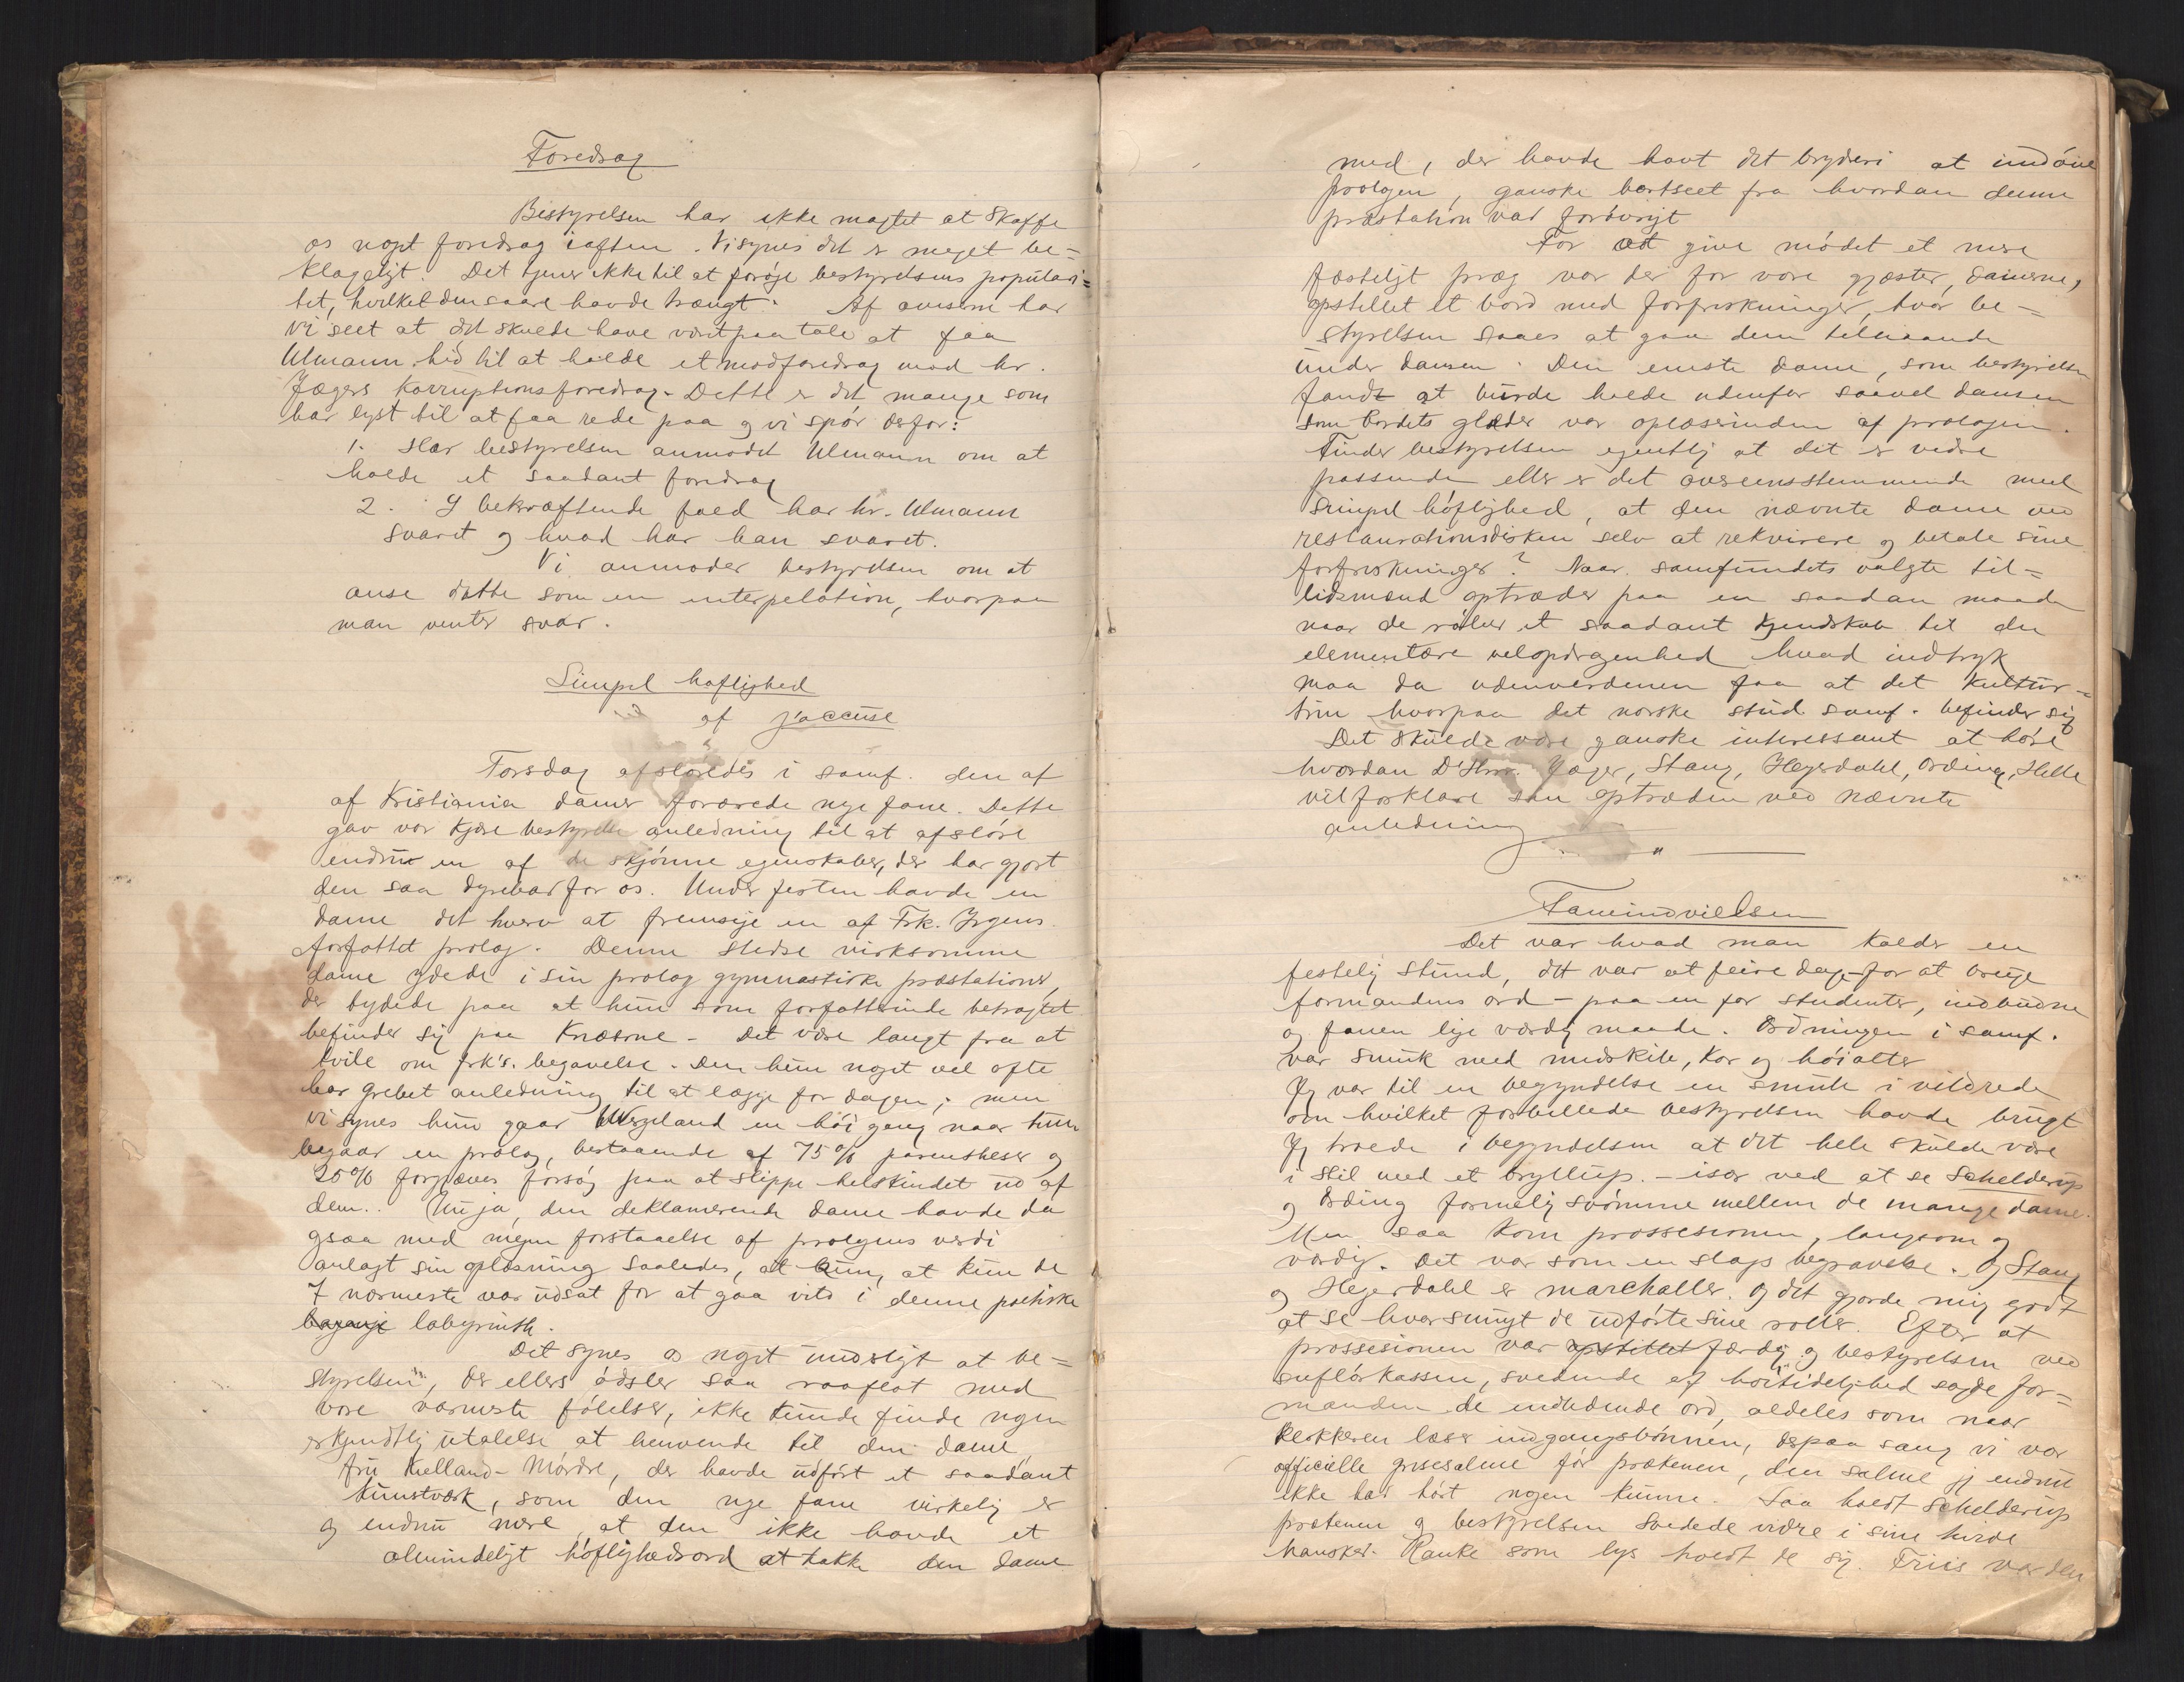 Foredrag
Bestyrelsen har ikke magtet at skaffe
os noget foredrag iaften. Vi synes det er meget be=
klageligt. Det tjener ikke til at forøge bestyrelsens populari=
tet, hvilket den saare havde trængt. Af aviserne har
vi seet at det skulde have været paa tale at faa
Ulmann hid til at holde et modforedrag mod hr.
Jægers korruptionsforedrag. Dette er det mange som
har lyst til at faa rede paa og vi spør derfor:
1. Har bestyrelsen anmodet Ulmann om at
holde et saadant foredrag
2. I bekræftende fald har hr. Ulmann
svaret og hvad har han svaret.
Vi anmoder bestyrelsen om at
anse dette som en interpelation, hvorpaa
man venter svar.
Simpel høflighed
af j'accuse
Torsdag afsløredes i samf. den af
af Kristiania damer forærede nye fane. Dette
gav vor kjære bestyrelse anledning til at afsløre
endnu en af de skjønne egenskaber, der har gjort
den saa dyrebar for os. Under festen havde en
dame det hverv at fremsige en af Frk. Irgens
forfattet prolog. Denne stedse virksomme
dame ydede i sin prolog gymnastiske præstationer,
der tydede paa at hun som forfatterinde betragtet
befinder sig paa knæerne. Det være langt fra at
tvile om frk's. begavelse. Den hun noget vel ofte
har grebet anledning til at lægge for dagen; men
vi synes hun gaar Wergeland en høi gang naar hun
begaar en prolog, bestaaende af 75% parentheser og
25% forgjæves forsøg paa at slippe helskindet ud af
dem.. Nu ja, den deklamerende dame havde da
ogsaa med megen forstaaelse af prologens værdi
anlagt sin oplæsning saaledes, at kun, at kun de
7 nærmeste var udsat for at gaa vild i denne poetiske
bagage labyrinth.
Det synes os noget undeligt at be=
styrelsen, der ellers ødsler saa raaflot med
vore varmeste følelser, ikke kunde finde nogen
erkjendtlig utalelse at henvende til den dame,
fru Kielland-Mørdre, der havde udført et saadant
kunstværk, som den nye fane virkelig er
og endnu mere, at den ikke havde et
almindeligt høflighedsord at takke den dame
med, der havde havt det bryderi at indøve
prologen, ganske bortseet fra hvordan denne
præstation var forøvrigt
For at give mødet et mere
festeligt præg var der for vore gjæster, damerne,
opstillet et bord med forfriskninger, hvor be=
styrelsen saaes at gaa dem tilhaande
under dansen. Den eneste dame, som bestyrelsen
fandt at burde holde udenfor saavel dansen
som bordets glæder var oplæserinden af prologen.
Finder bestyrelsen egentlig at det er videre
passende eller er det overensstemmende med
simpel høflighed, at den nævnte dame ved
restaurationsdisken selv at rekvirere og betale sine
forfriskninger? Naar samfundets valgte til=
lidsmænd optræder paa en saadan maade
naar de røber et saadant kjendskab til den
elementære velopdragenhed hvad indtryk
maa da udenverdenen faa at det kultur=
trin hvorpaa det norske stud. samf. befinder sig
Det skulde være ganske interessant at høre
hvordan D'Hrr. Jæger, Stang, Hegerdahl, Ording, Helle
vil forklare sin optræden ved nævnte
anledning
"
Faneindvielsen
Det var hvad man kalder en
festelig stund, det var at feire dage – for at bruge
formandens ord – paa en for studenter, indbudne
og fanen lige værdig maade. Ordningen i samf.
var smuk med midskib, kor og høialter
Jeg var til en begyndelse en smule i vildrede
om hvilket forbillede bestyrelsen havde brugt
Jeg troede i begyndelsen at det hele skulde være
i stil med et bryllup. – især ved at se Schelderup
og Ording formelig svømme mellem de mange damer.
Men saa kom prossesionen, langsom og
værdig. Det var som en slags begravelse. Og Stang
og Hegerdahl er marchaller. og det gjorde mig godt
at se hvor smugt de udførte sine roller. Efter at
prossesionen var opstillet færdig og bestyrelsen ved
suflørkassen, svedende af høitidelighed sagde for=
manden de indledende ord, aldeles som naar
klokkeren læser indgangsbønnen, derpaa sang vi vor
officielle grisesalme før prækenen, den salme jeg endnu
ikke har hørt nogen kunne. Saa holdt Schelderup
prækenen og bestyrelsen svedede vidre i sine hvide
hansker. Ranke som lys holdt de sig. Friis var den